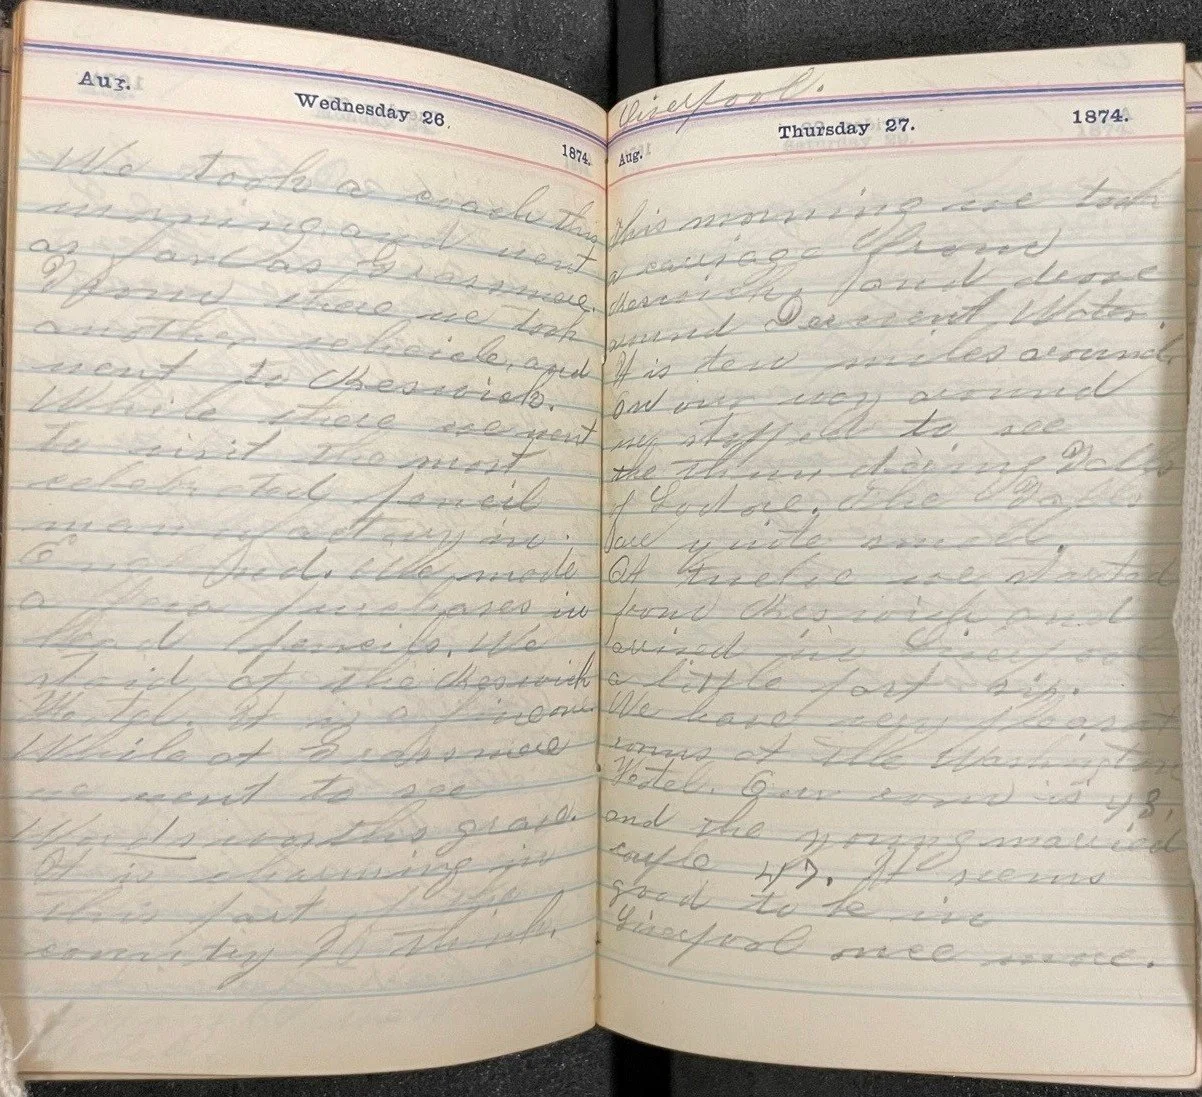 Aug.
Wednesday 26.
1874.
We took a coach this
morning and went
as far as Grasmere.
From there we took
another vehicle, and
went to Keswick.
While there we went
to visit the most
celebrated pencil
manufactory in
England. We made
a few purchases in
lead pencils. We
staid at the Keswick
Hotel. It is a fine one.
While at Grasmere
we went to see
Wordsworths grave.
It is charming in
this part of the
country I think.
Liverpool.
Thursday 27.
1874.
Aug.
This morning we took
a carriage from
Keswick, and drove
around Derwent Water.
It is ten miles around.
On our way around
we stopped to see
the thundering Falls
of Lodore. The Falls
are quite small.
At twelve we started
from Keswick and
arrived in Liverpool
a little past six.
We have very pleasant
rooms at the Washington
Hotel. Our room is 48,
and the young married
couple 47. It seems
good to be in
Liverpool once more.